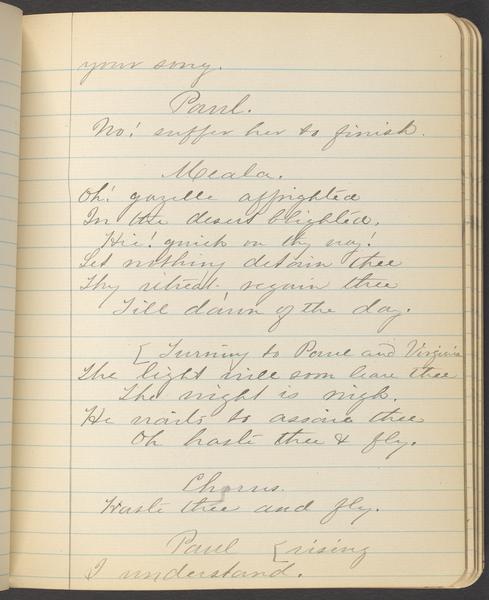 your song.
Paul.
No! suffer her to finish.
Meala.
Oh! gazelle affrighted
In the desert blighted,
Hie! quick on thy way!
Let nothing detain thee
Thy retreat regain thee
Till dawn of the day.
[Turning to Paul and Virginia
The light will soon leave thee
The night is nigh.
He waits to assail thee
Oh haste thee & fly.
Chorus.
Haste thee and fly.
Paul [rising
I understand.